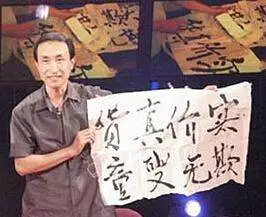 货真价实
童叟无欺